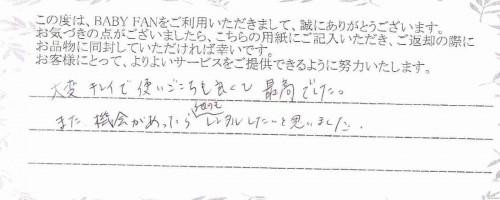 この度は、BABY FANをご利用いただきまして、誠にありがとうございます。
お気づきの点がございましたら、こちらの用紙にご記入いただき、ご返却の際に
お品物に同封していただければ幸いです。
お客様にとって、よりよいサービスをご提供できるように努力いたします。
大変キレイで使いごこちも良くて最高でした。
また機会があったら レンタルしたいと思いました。